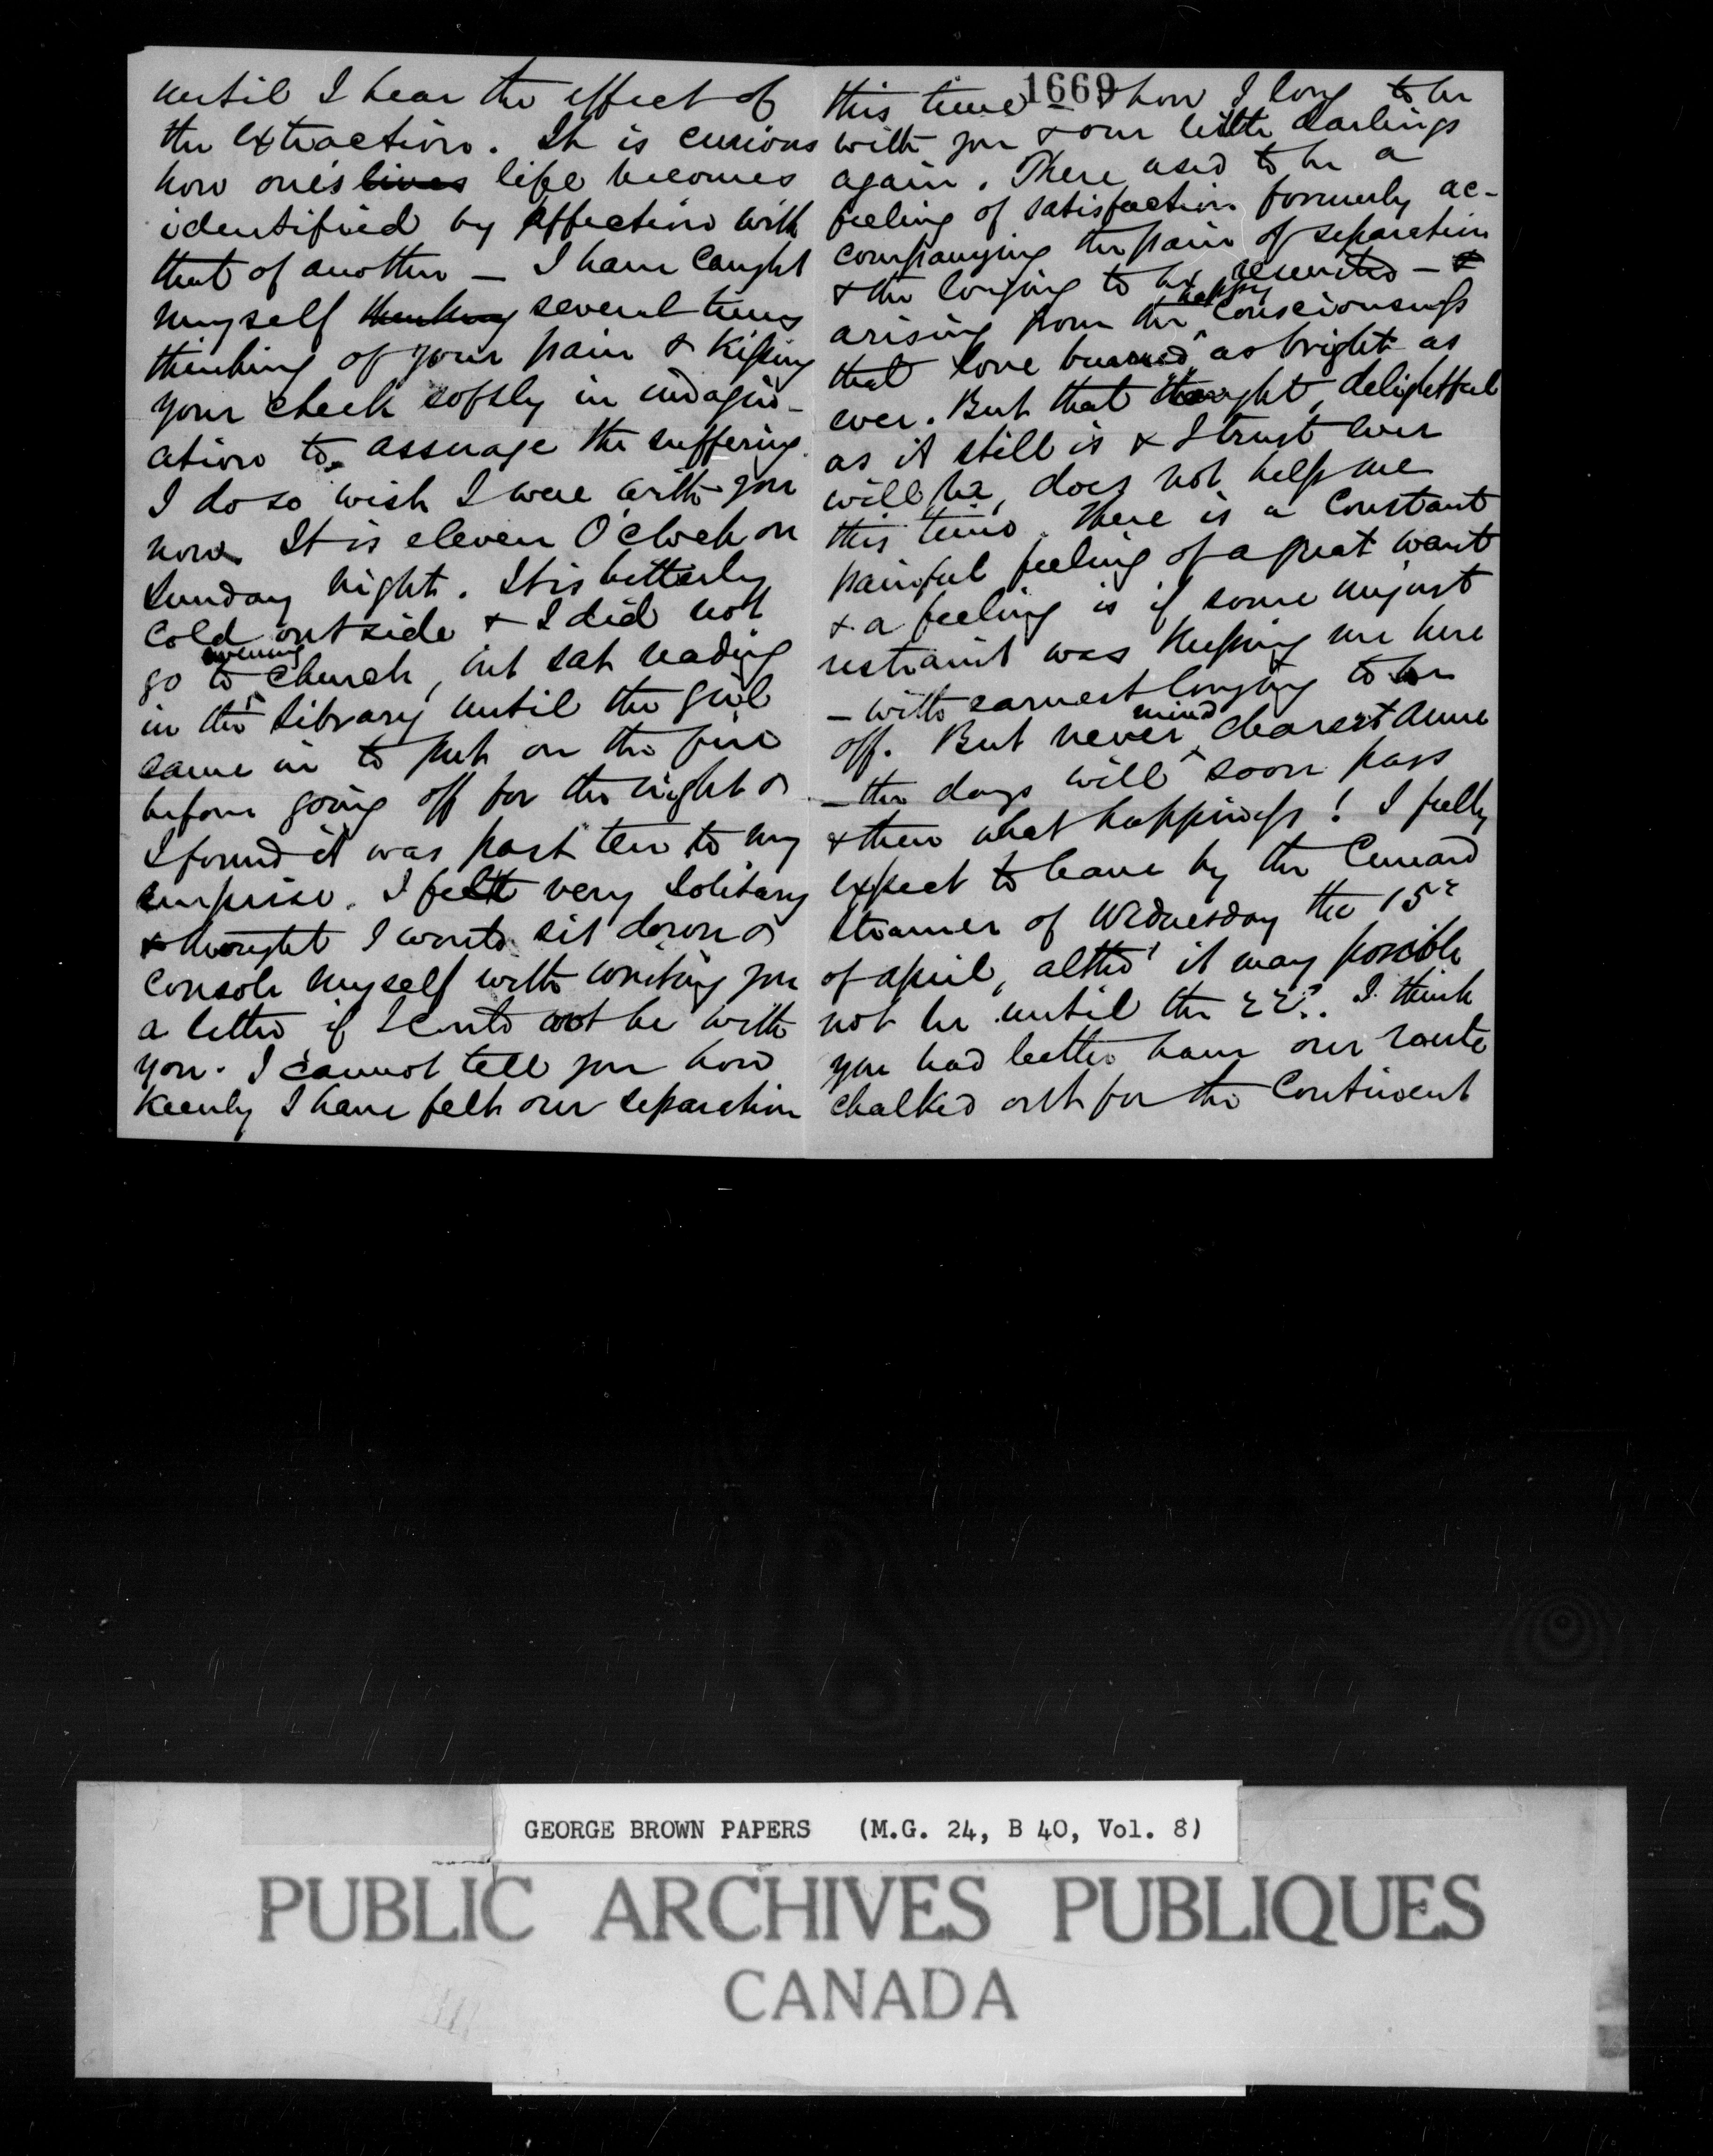 until I hear the effect of
the extraction. It is curious
how one's lives life becomes
identified by affection with
that of another — I have caught
myself thinking several times
thinking of your pain & kissing
your cheek softly in imagin-
ation to assuage the suffering.
I do so wish I were with you
now. It is eleven O'clock on
Sunday night. It is bitterly
cold outside & I did not
go to evening church, but sat reading
in the library until the girl
came in to put on the fire
before going off for the night &
I found it was past ten to my
surprise. I felt very solitary
& thought I would sit down &
console myself with writing you
a letter if I could not be with
you. I cannot tell you how
keenly I have felt our separation
1669
this time — & how I long to be
with you & our little darlings
again. There used to be a
feeling of satisfaction formerly ac-
companying the pain of separation
& the longing to be reunited — &
arising from the happy consciousness
that love burned as bright as
ever. But that thought, delightful
as it still is & I trust ever
will be, does not help me
this time. There is a constant
painful feeling of a great want
& a feeling is if some unjust
restraint was keeping me here
— with earnest longing to be
off. But never mind dearest Anne
— the days will soon pass
& then what happiness! I fully
expect to leave by the Cunard
steamer of Wednesday the 15th
of April, altho' it may possible
not be until the 22d. I think
you had better have our route
chalked out for the Continent
GEORGE BROWN PAPERS (M.G. 24, B 40, Vol. 8)
PUBLIC ARCHIVES PUBLIQUES
CANADA